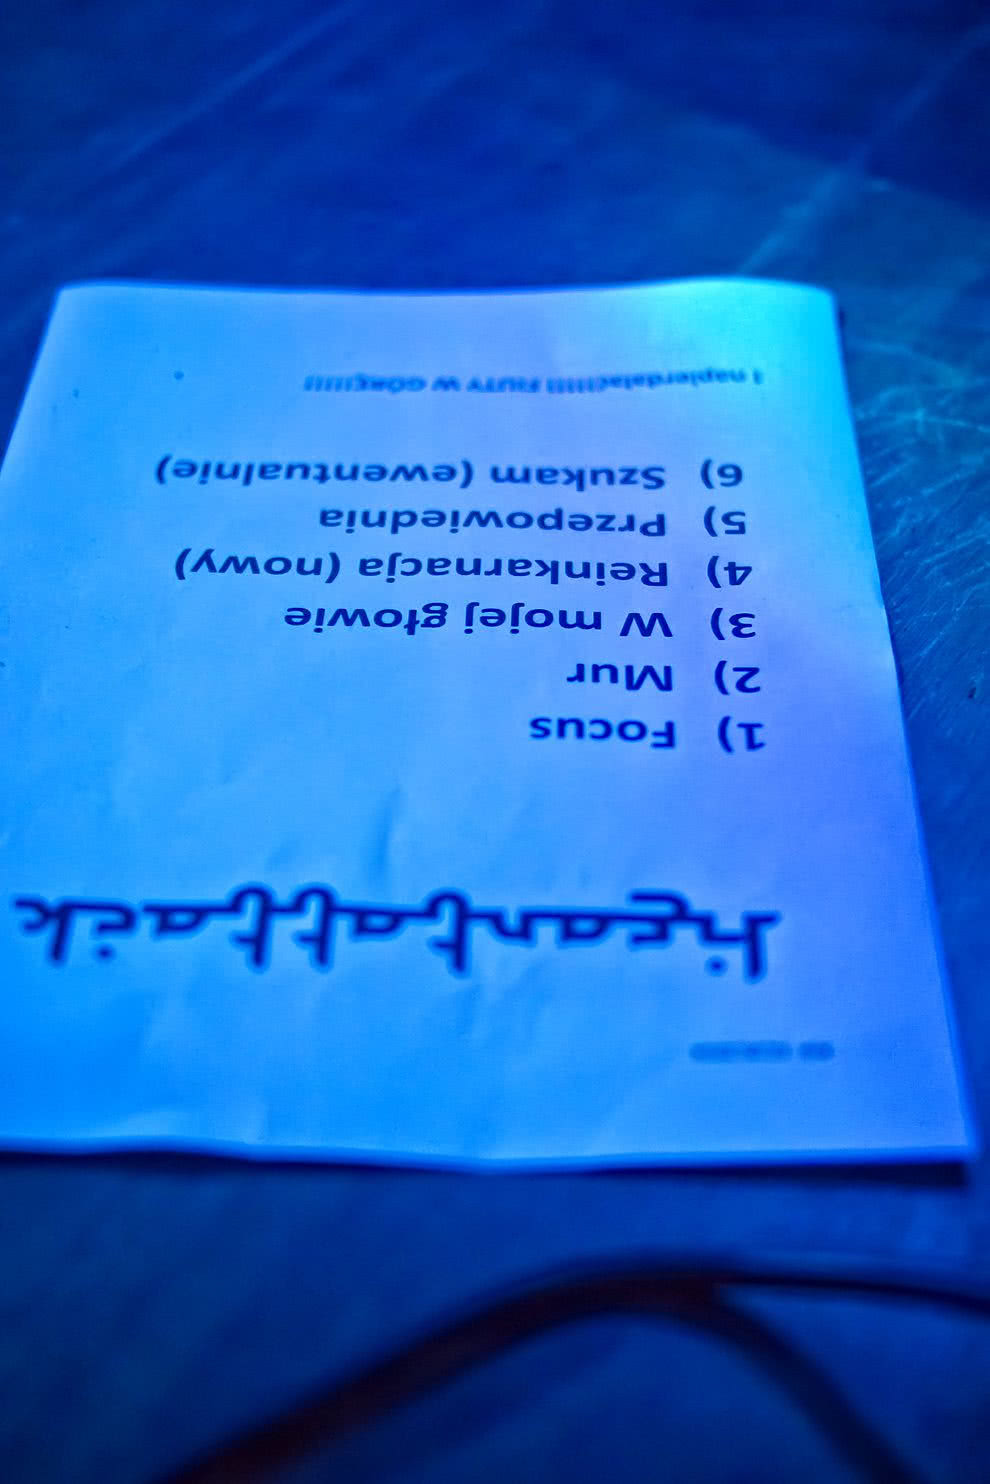 heartattack
1) Focus
2) Mur
3) W mojej głowie
4) Reinkarnacja (nowy)
5) Przepowiednia
6) Szukam (ewentualnie)
I napierdalać!!!!! FIUTY W GÓRĘ!!!!!